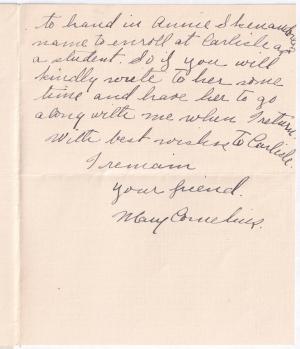 to hand in Annie Skenandore
name to enroll at Carlisle as
a student. So if you will
kindly write to her some
time and have her to go
along with me when I return
With best wishes to Carlisle.
I remain
your friend.
Mary Cornelius.